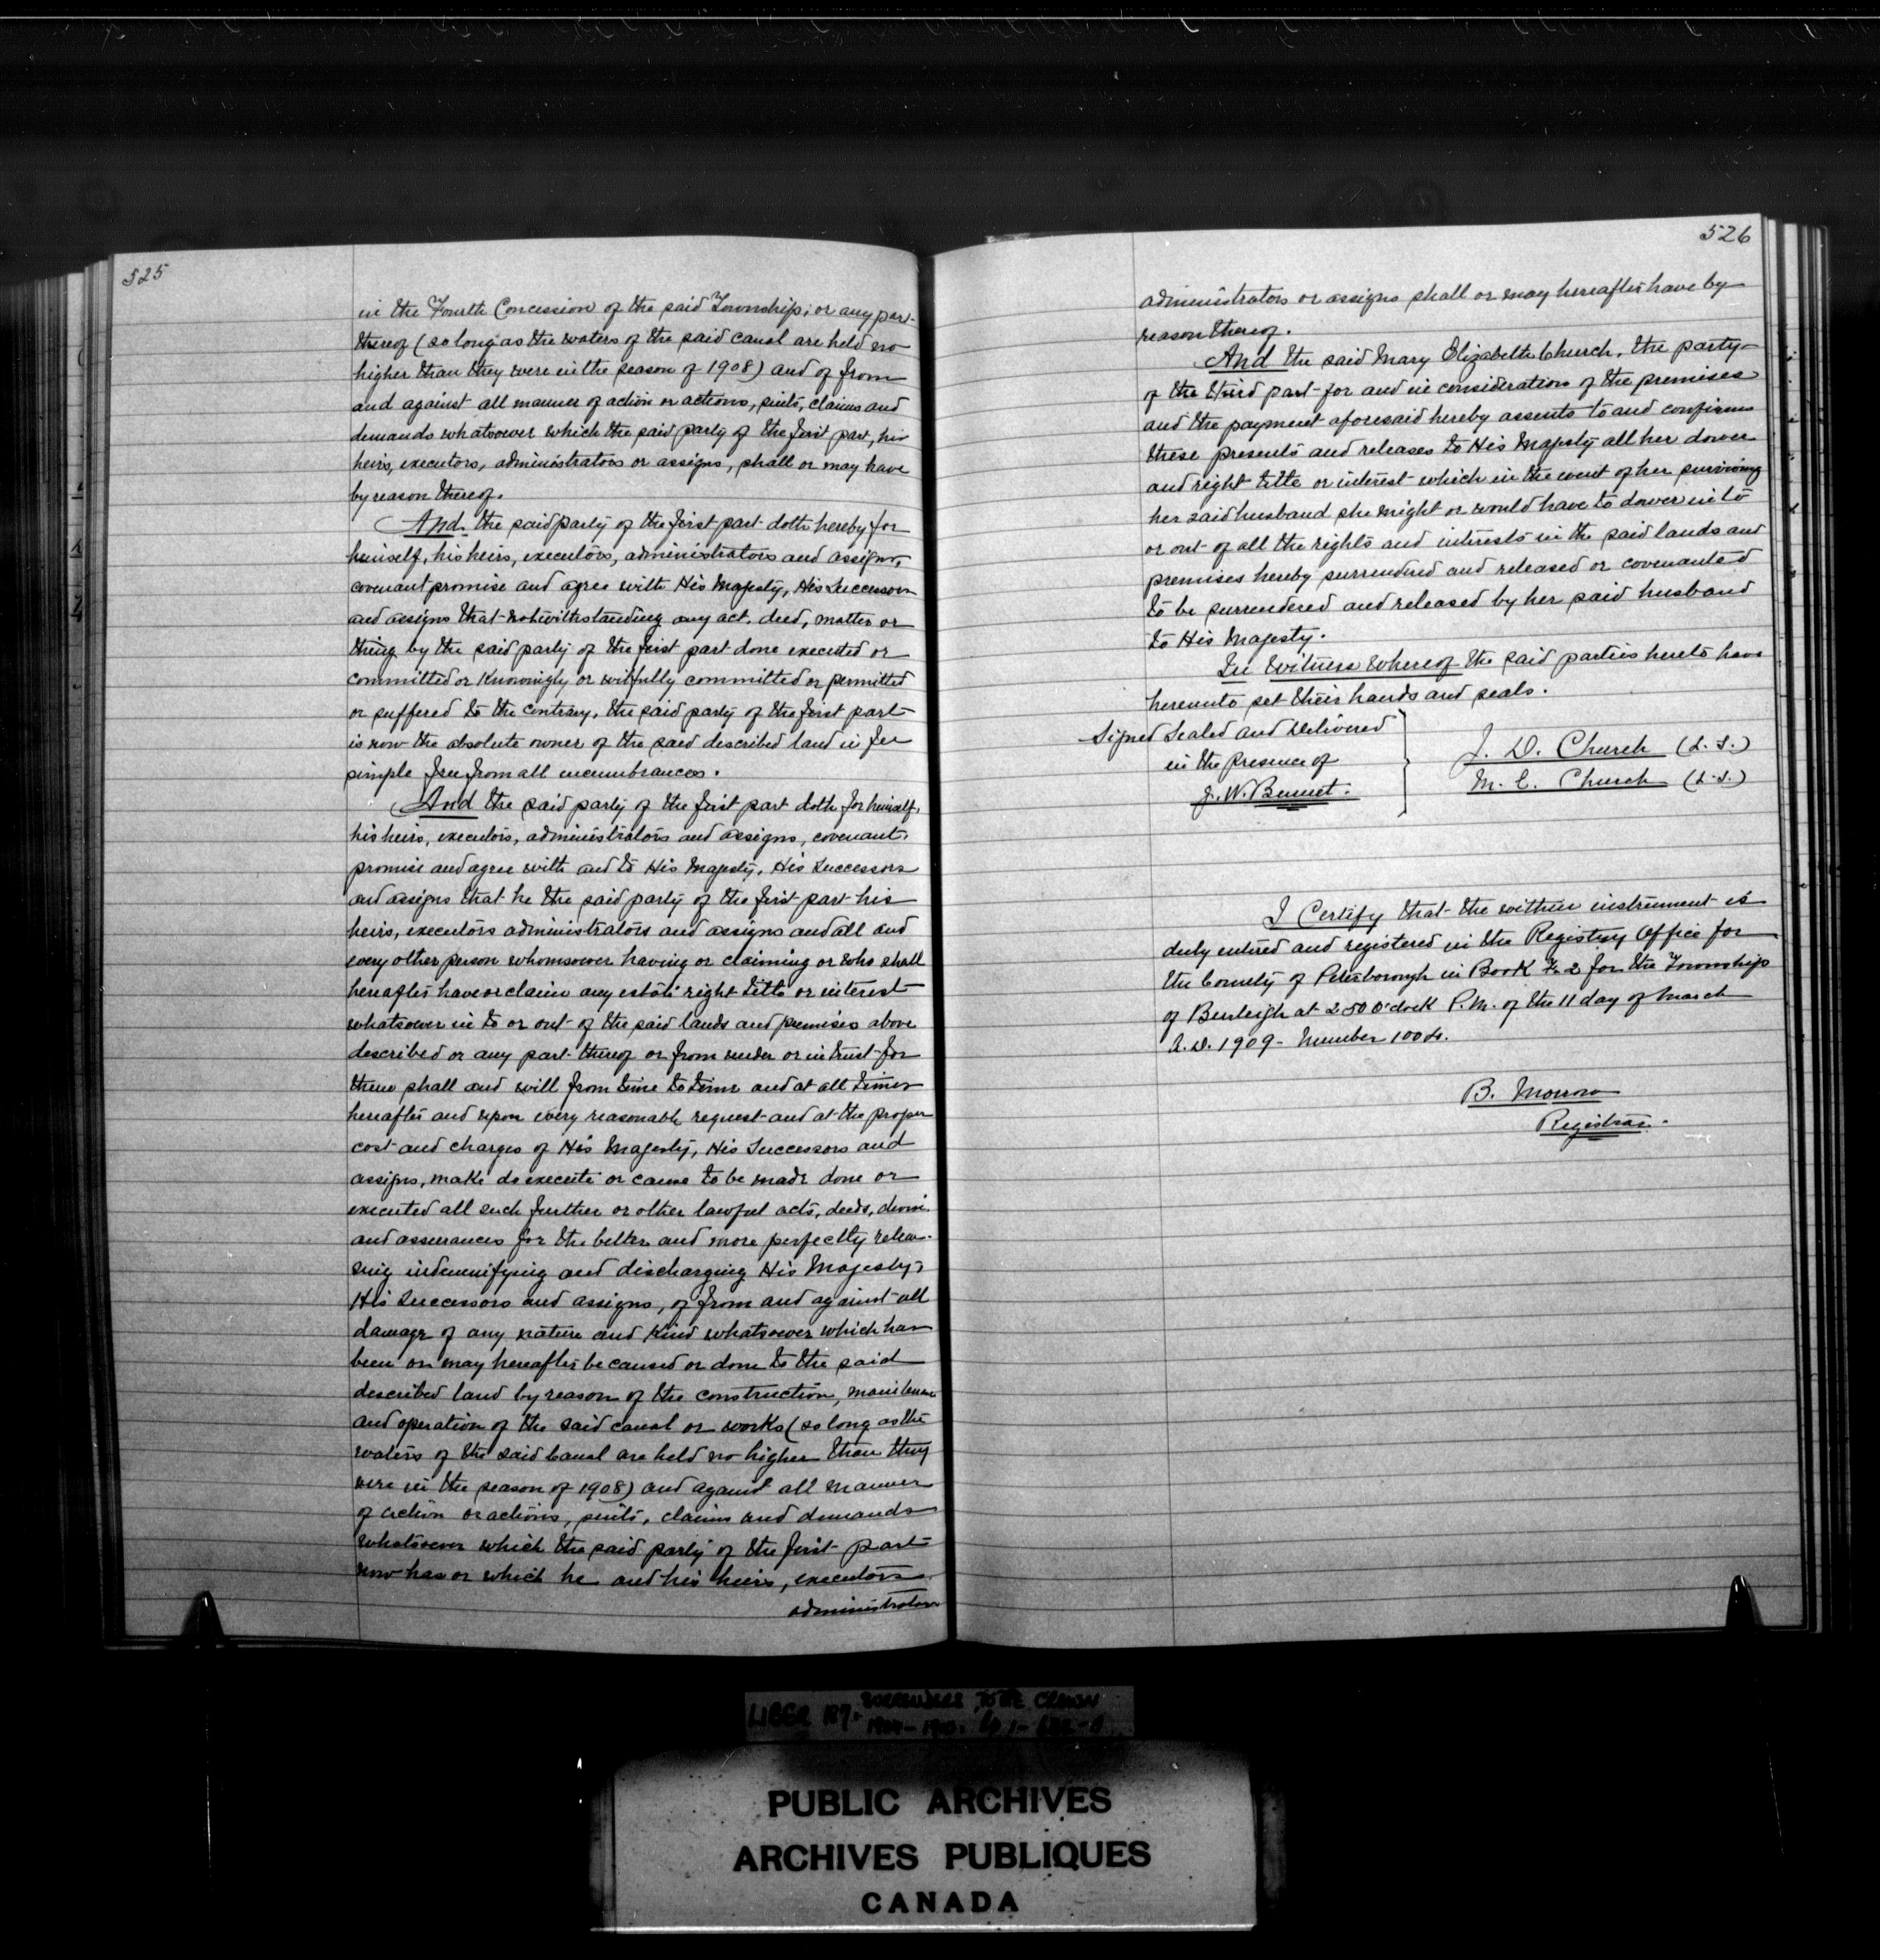 525
in the Fourth Concession of the said Township; or any part
thereof (so long as the waters of the said canal are held no
higher than they were in the season of 1908) and of from
and against all manner of action or actions, suits, claims and
demands whatsoever which the said party of the first part, his
heirs, executors, administrators or assigns, shall or may have
by reason thereof.
And the said party of the first part doth hereby for
himself, his heirs, executors, administrators and assigns,
covenant promise and agree with His Majesty, His Successors
and assigns that notwithstanding any act, deed, matter or
thing by the said party of the first part done executed or
committed or knowingly or wilfully committed or permitted
or suffered to the contrary, the said party of the first part
is now the absolute owner of the said described land in fee
simple free from all incumbrances.
And the said party of the first part doth for himself,
his heirs, executors, administrators and assigns, covenant,
promise and agree with and to His Majesty, His Successors
and assigns that he the said party of the first part his
heirs, executors administrators and assigns and all and
every other person whomsoever having or claiming or who shall
hereafter have or claim any estate right title or interest
whatsoever in to or out of the said lands and premises above
described or any part thereof or from under or in trust for
them shall and will from time to time and at all times
hereafter and upon every reasonable request and at the proper
cost and charges of His Majesty, His Successors and
assigns, make do execute or cause to be made done or
executed all such further or other lawful acts, deeds, devises
and assurances for the better and more perfectly relea-
sing indemnifying and discharging His Majesty,
His Successors and assigns, of from and against all
damage of any nature and kind whatsoever which has
been or may hereafter be caused or done to the said
described land by reason of the construction, maintenance
and operation of the said canal or works (so long as the
waters of the said Canal are held no higher than they
were in the season of 1908) and against all manner
of action or actions, suits, claims and demands
whatsoever which the said party of the first part
now has or which he and his heirs, executors
administrators
526
administrators or assigns shall or may hereafter have by
reason thereof.
And the said Mary Elizabeth Church, the party
of the third part for and in consideration of the premises
and the payment aforesaid hereby assents to and confirms
these presents and releases to His Majesty all her dower
and right title or interest which in the event of her surviving
her said husband she might or would have to dower in to
or out of all the rights and interests in the said lands and
premises hereby surrendered and released or covenanted
to be surrendered and released by her said husband
to His Majesty.
In Witness Whereof the said parties hereto have
hereunto set their hands and seals.
Signed Sealed and Delivered
in the Presence of
J. W. Bennet.
J. D. Church (L.S.)
M. E. Church (L.S.)
I Certify that the within instrument is
duly entered and registered in the Registry Office for
the County of Peterborough in Book F. 2 for the Township
of Burleigh at 2-50 O'clock P.M. of the 11 day of March
A.D. 1909 - Number
B. Morrow
Registrar.
LIBER 187. SURRENDERS TO THE CROWN
PUBLIC ARCHIVES
ARCHIVES PUBLIQUES
CANADA